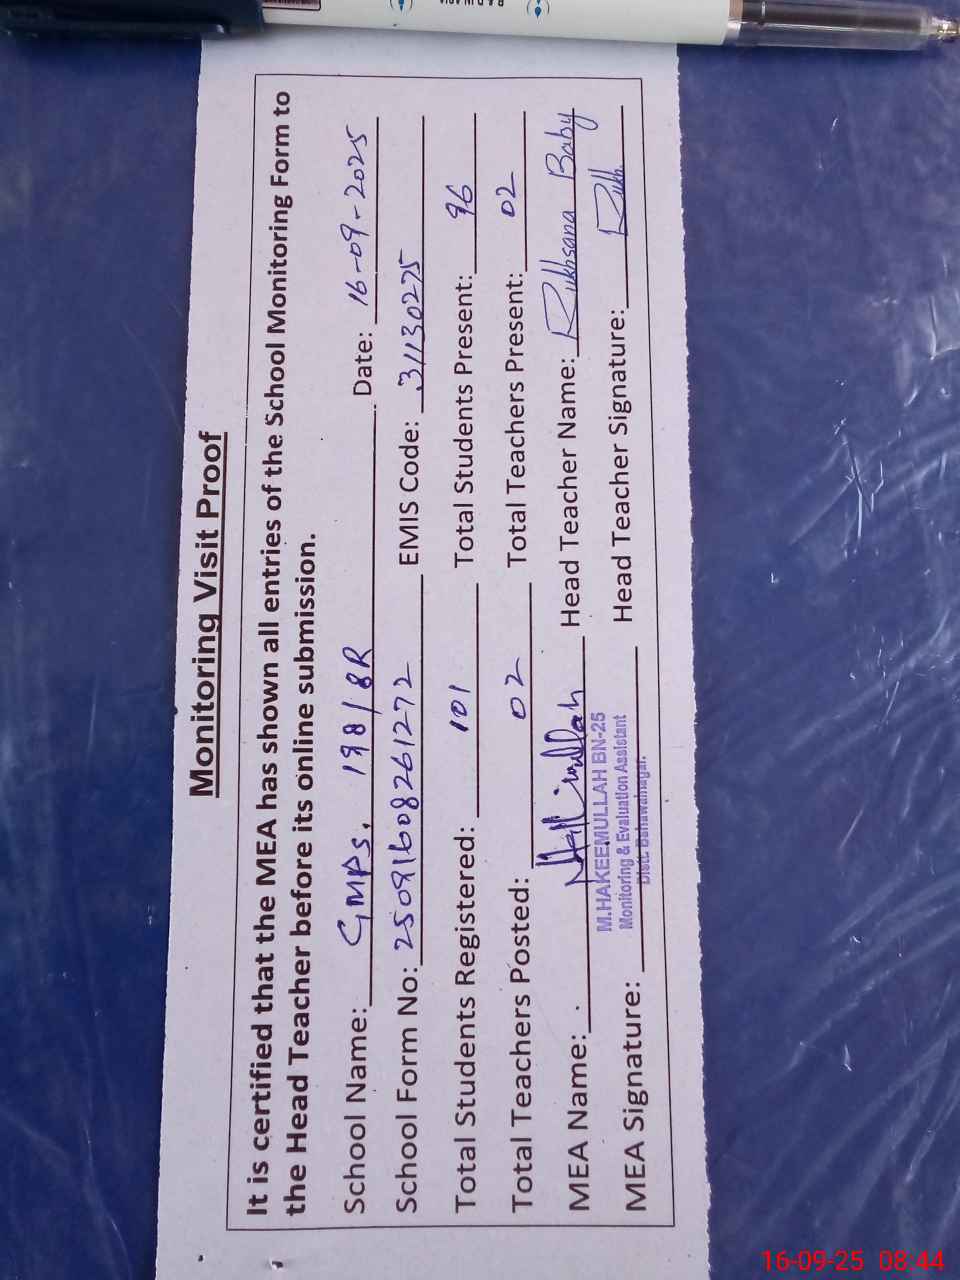 Monitoring Visit Proof
It is certified that the MEA has shown all entries of the School Monitoring Form to
the Head Teacher before its online submission.
School Name: GMPS. 198/8R Date: 16-09-2025
School Form No: 250916082612​72 EMIS Code: 31130275
Total Students Registered: 101 Total Students Present: 96
Total Teachers Posted: 02 Total Teachers Present: 02
MEA Name: Head Teacher Name: Rukhsana Baby
M.HAKEEMULLAH BN-25
Monitoring & Evaluation Assistant
Distt. Bahawalnagar.
MEA Signature: Head Teacher Signature: Rukh.
16-09-25 08:44